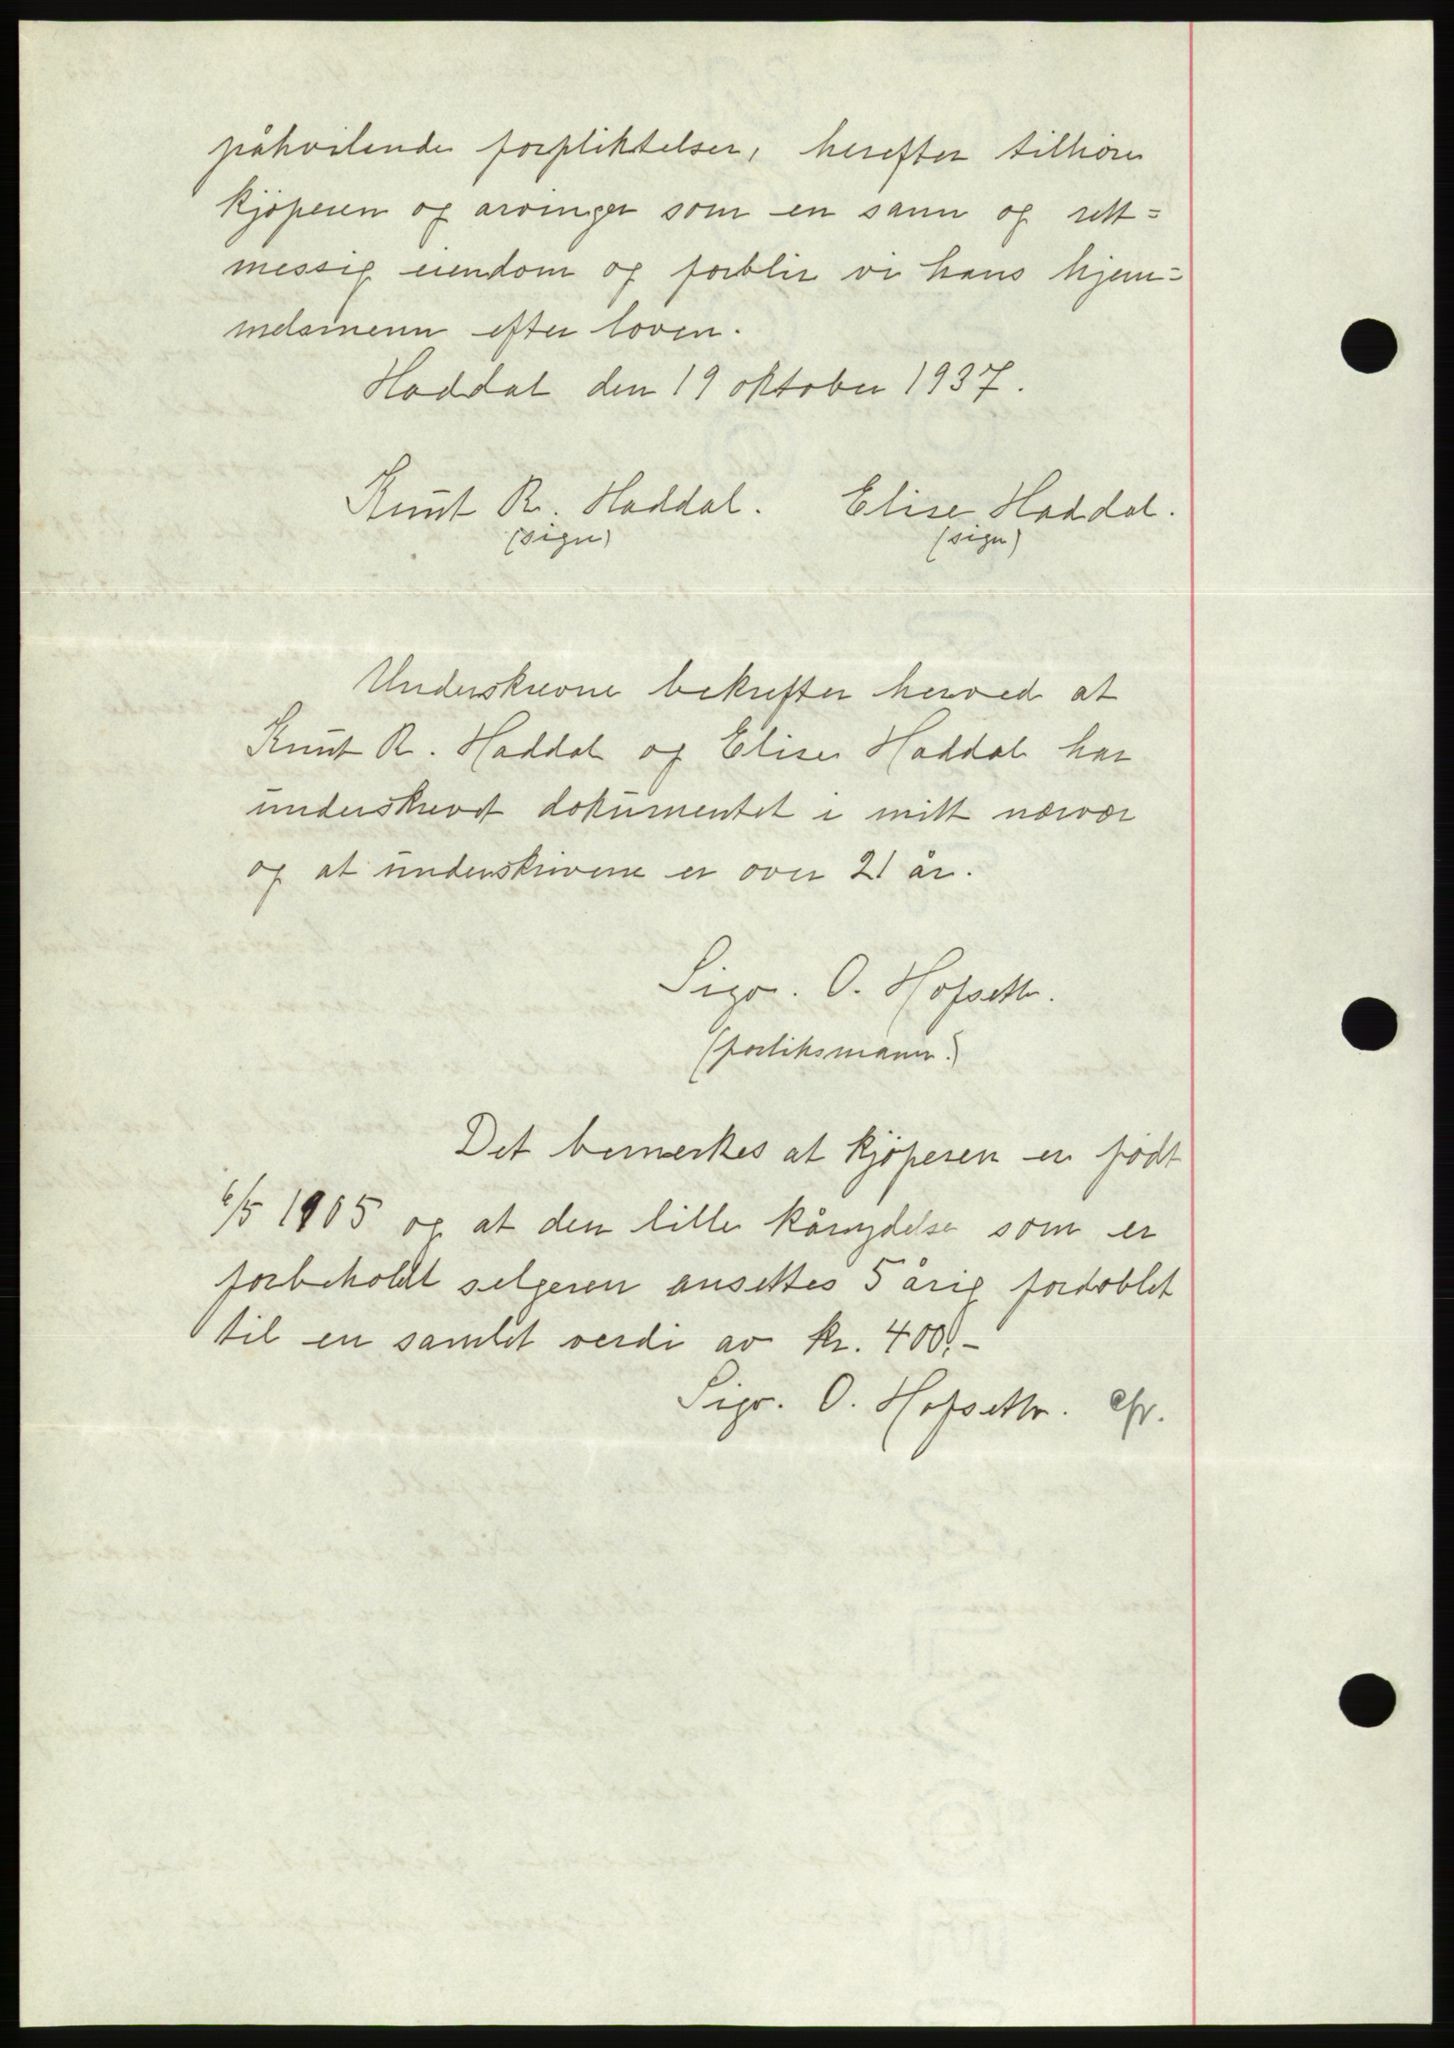 påhvilende forpliktelser, herefter tilhører
kjøperen og arvinger som en sann og rett=
messig eiendom og forblir vi hans hjem=
melsmenn efter loven.
Haddal den 19 oktober 1937.
Knut R. Haddal. Elise Haddal.
(sign) (sign)
Underskrevne bekrefter herved at
Knut R. Haddal og Elise Haddal har
underskrevet dokumentet i mitt nærvær
og at underskriverne er over 21 år.
Sigv. O. Hofseth.
(forliksmann.)
Det bemerkes at kjøperen er født
6/5 1905 og at den lille kårnydelse som er
forbeholdt selgeren ansettes 5 årig fordoblet
til en samlet verdi av kr. 400.-
Sigv. O. Hofseth.